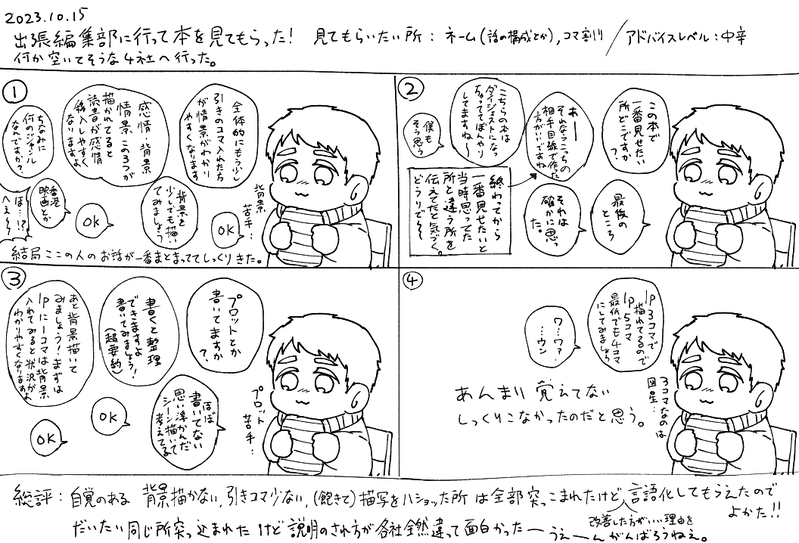 2023.10.15
出張編集部に行って本を見てもらった! 見てもらいたい所:ネーム(話の構成とか),コマ割り/アドバイスレベル:中辛
何か空いてそうな4社へ行った。
①
全体的にもう少し
引きのコマ入れたら
情景がわかり
やすくなります
背景
苦手…
OK
感情、背景
情景、この3つが
描かれてると
読者が感情
移入しやすく
なりますよ
背景を
少しでも描い
てみましょう
OK
ちなみに
何のジャンル
なんですか?
香港
映画とか
ほ…!?
へえ〜!
結局ここの人のお話が一番まとまっててしっくりきた。
②
この本で
一番見せたい
所どこですか
?
最後の
ところ
あー
それならこっちの
相手目線で作った
方がいいですね
それは
確かに思っ
た。
こちらの本は
ダイジェストになっ
ちゃっててぼんやり
してますね
僕も
そう思う
終わってから
当時思ってた
一番見せたいと
所と違う所を
伝えてたと気づく。
どうりで〜
③
プロットとか
書いてます
か?
プロット
苦手…
ほぼ
書いてない
思い浮かんだ
シーン描いてって
考えてる
書くと整理
できますよ
書いてみましょう!
(超要約)
OK
あと背景描いて
みましょう!まずは
1pに1コマは背景
入れてみると状況がよ
りわかりやすくなりますよ
OK
④
1p3コマで
描かれてるので
1p5コマ
最低でも4コマ
にしてみましょう
3コマなのは
図星…
ワ…ワァ…
…ウン
あんまり覚えてない
しっくりこなかったのだと思う。
総評:自覚のある 背景描かない,引きコマ少ない,(飽きて)描写をハショッた所 は全部突っこまれたけど 言語化してもらえたので
よかた!!
改善した方がいい理由を
だいたい同じ所突っ込まれたけど 説明のされ方が各社全然違って面白かったー うえーんがんばろうねぇ。